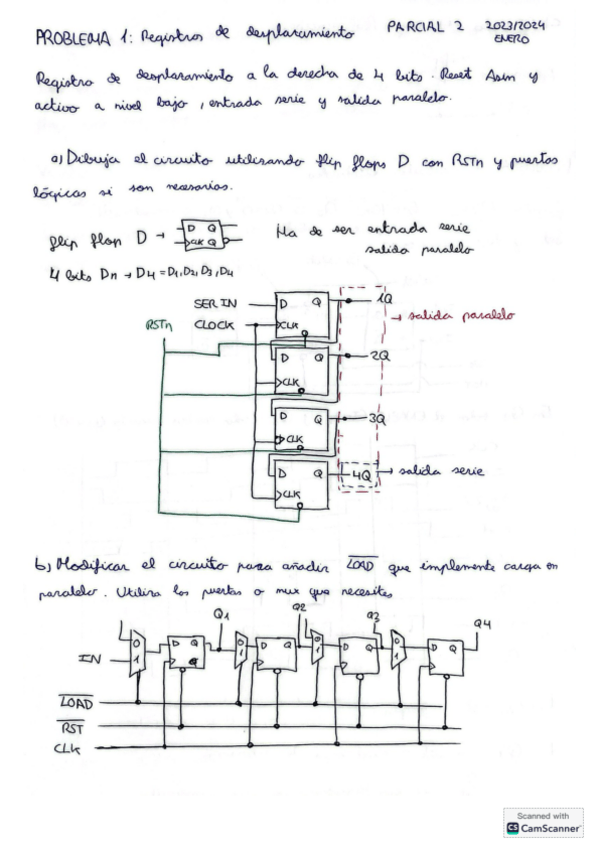 PROBLEMA 1: Registros de desplazamiento PARCIAL 2 2023/2024
ENERO
Registro de desplazamiento a la derecha de 4 bits. Reset Asin y
activo a nivel bajo, entrada serie y salida paralelo.
a) Dibuja el circuito utilizando flip flops D con RSTn y puertas
lógicas si son necesarias.
flip flop D → D Q CLK Q
Ha de ser entrada serie
salida paralelo
4 bits Dn → D4 = D1, D2, D3, D4
SER IN D Q 1Q
RSTn CLOCK CLK → salida paralelo
D Q 2Q
CLK
D Q 3Q
CLK
D Q 4Q → salida serie
CLK
b) Modificar el circuito para añadir LOAD que implemente carga en
paralelo. Utiliza los puertas o mux que necesites
Q1 Q2 Q3 Q4
0 D Q 0 D Q 0 D Q 0 D Q
IN 1 1 1 1
LOAD
RST
CLK
Scanned with
CS CamScanner